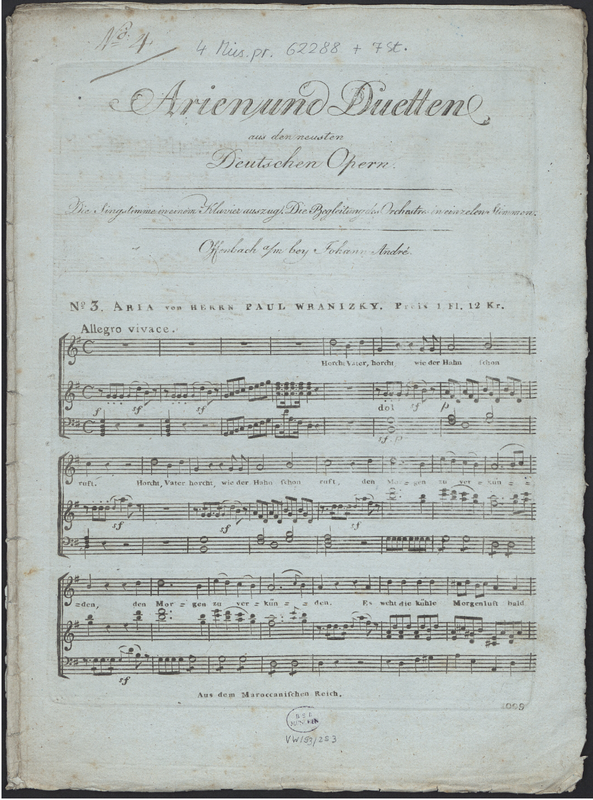 No. 4.
4 Mus.pr. 62288 + 7 St.
Arien und Duetten
aus den neusten
Deutschen Opern.
Die Singstimme in einem Klavier auszug, Die Begleitung des Orchestre in einzelen Stimmen.
Offenbach a/m bey Johann André.
No. 3. ARIA VON HERRN PAUL WRANIZKY. Preis 1 Fl. 12 Kr.
Allegro vivace.
Horch, Vater, horch, wie der Hahn ſchon
f sf sf dol sf p
sf p
ruft. Horch, Vater horch, wie der Hahn ſchon ruft, den Mor⸗gen zu ver⸗kün⸗⸗
sf sf sf
⸗den, den Mor⸗gen zu ver⸗kün⸗⸗den. Es weht die kühle Morgenluft bald
sf
Aus dem Maroccaniſchen Reich.
1009
BSB
MÜNCHEN
VW153/253